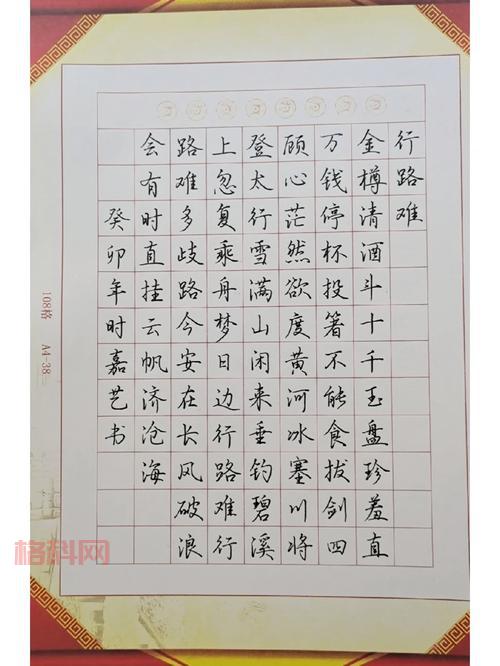 行路难
金樽清酒斗十千玉盘珍羞直
万钱停杯投箸不能食拔剑四
顾心茫然欲度黄河冰塞川将
登太行雪满山闲来垂钓碧溪
上忽复乘舟梦日边行路难行
路难多歧路今安在长风破浪
会有时直挂云帆济沧海
癸卯年时嘉艺书
108格 A4-38
格科网